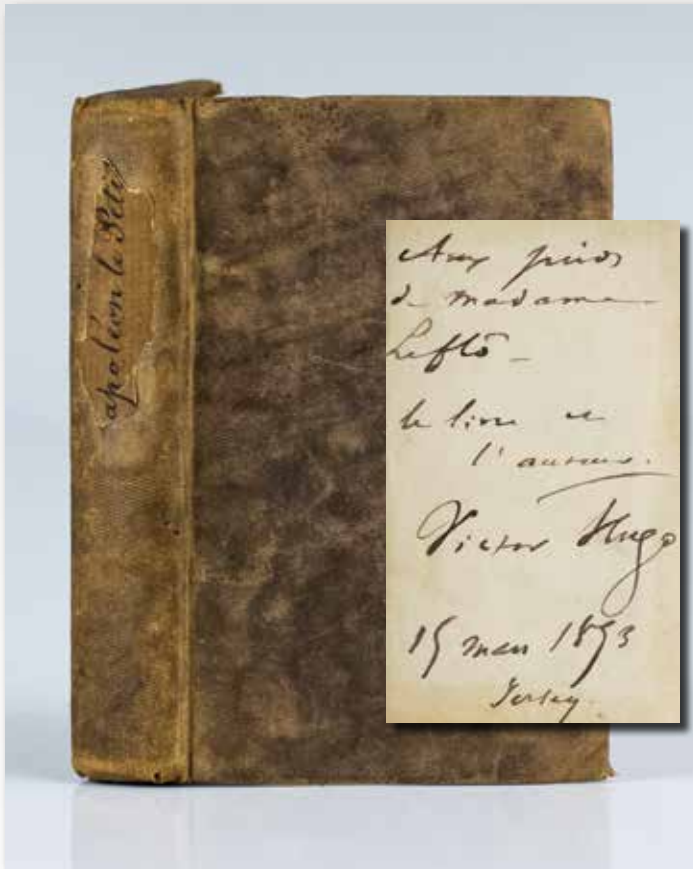 apoléon le Petit
Aux pieds
de madame
Leflô -
le livre et
l'auteur.
Victor Hugo
15 mars 1853
Jersey